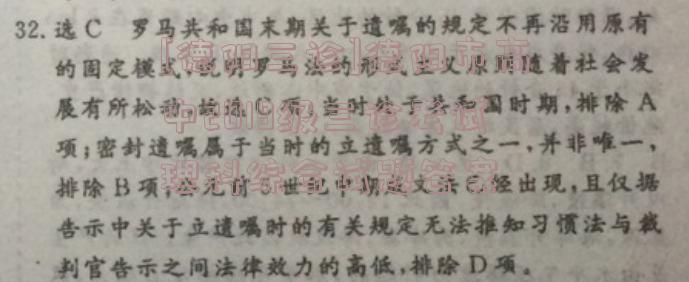 32. 选 C 罗马共和国末期关于遗嘱的规定不再沿用原有
的固定模式,说明罗马法的形式主义原则随着社会发
展有所松动,故选 C 项;当时处于共和国时期,排除 A
项;密封遗嘱属于当时的立遗嘱方式之一,并非唯一,
排除 B 项;公元前 5 世纪中期成文法已经出现,且仅据
告示中关于立遗嘱时的有关规定无法推知习惯法与裁
判官告示之间法律效力的高低,排除 D 项。
[德阳三诊]德阳市高
中2019级三诊考试
理科综合试题答案